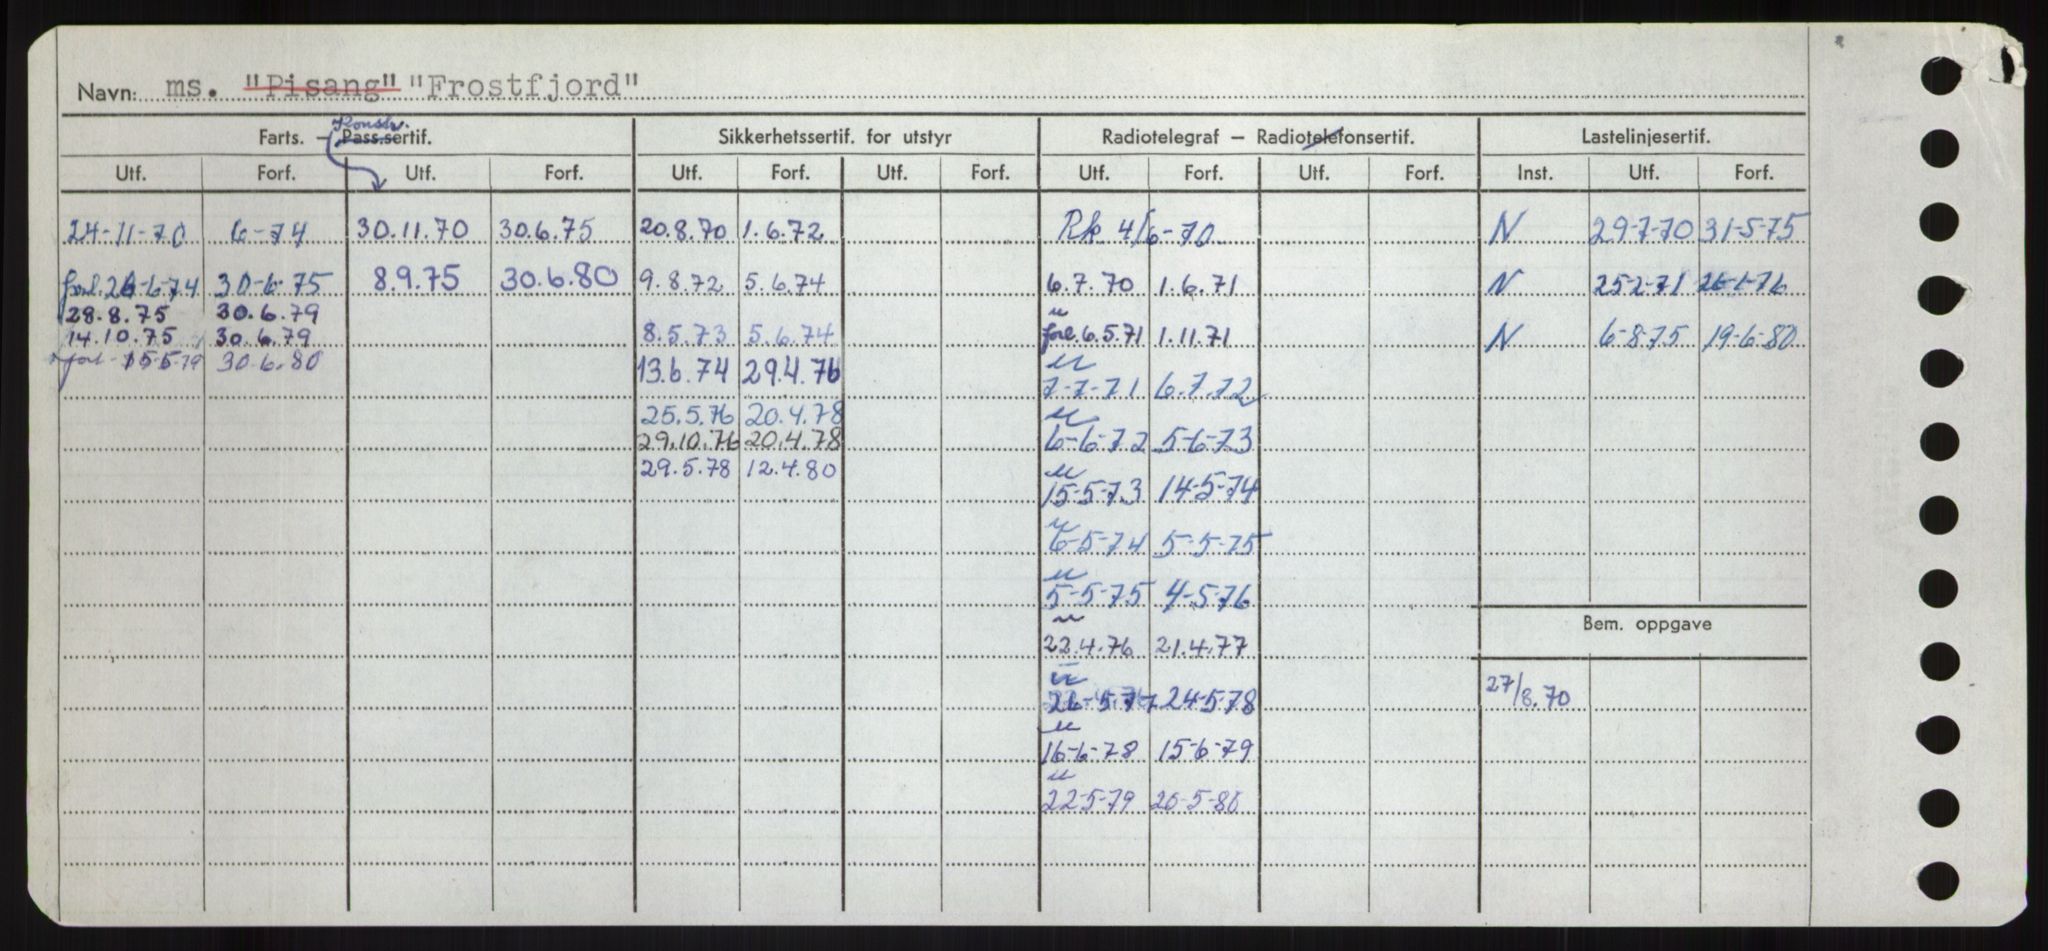 Navn: ms. "Pisang" "Frostfjord"
Konstr.
Farts. — Pass.sertif. Sikkerhetssertif. for utstyr Radiotelegraf — Radiotelefonsertif. Lastelinjesertif.
Utf. Forf. Utf. Forf. Utf. Forf. Utf. Forf. Utf. Forf. Utf. Forf. Inst. Utf. Forf.
24-11-70 6-74 30.11.70 30.6.75 20.8.70 1.6.72 Rk 4/6-70 N 29-7-70 31-5-75
forl. 26-6-74 30-6-75 8.9.75 30.6.80 9.8.72 5.6.74 6.7.70 1.6.71 N 25-2-71 26-1-76
28.8.75 30.6.79
14.10.75 30.6.79 8.5.73 5.6.74 forl. 6.5.71 1.11.71 N 6-8-75 19-6-80
forl - 15-5-79 30.6.80 13.6.74 29.4.76
7-7-71 6.7.72
25.5.76 20.4.78
29.10.76 20.4.78 6-6-72 5-6-73
29.5.78 12.4.80
15-5-73 14-5-74
6-5-74 5-5-75
5-5-75 4-5-76
Bem. oppgave
22.4.76 21.4.77
27/8.70
5-77 24-5-78
16-6-78 15-6-79
22-5-79 20-5-80